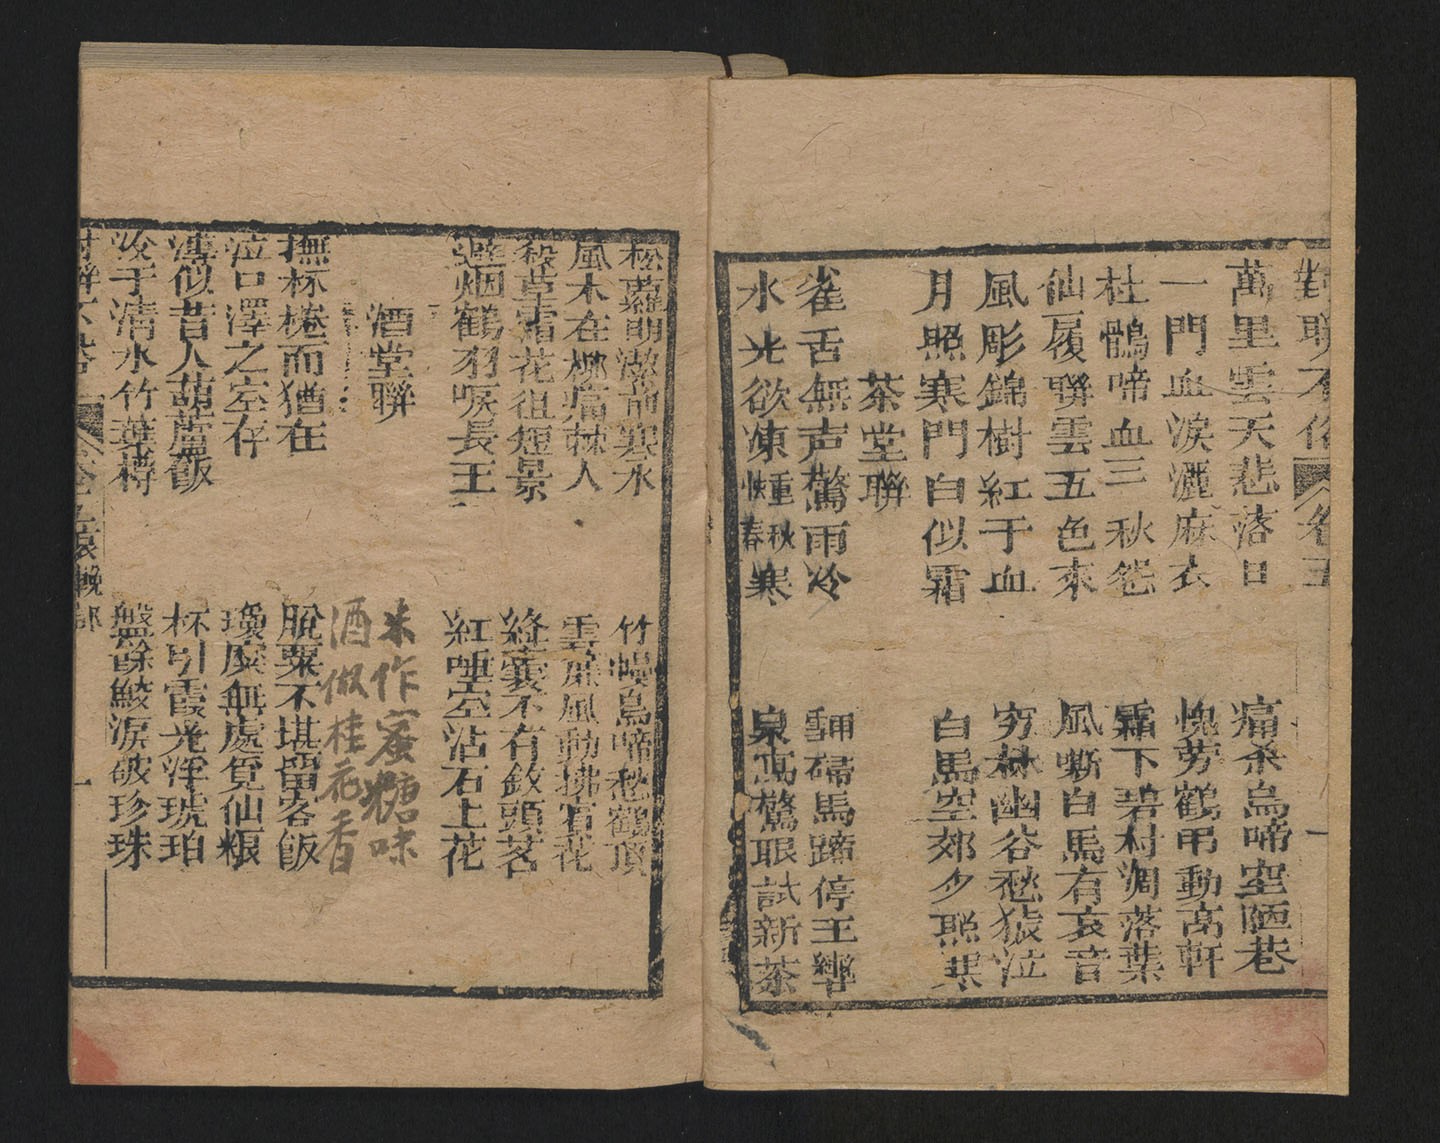 對聯不俗 卷五
萬里雲天悲落日 痛杀烏啼空陋巷
一門血淚灑麻衣 愧芻鶴弔動高軒
杜鵑啼血三秋怨 霜下碧村凋落葉
仙履聯雲五色來 風嘶白馬有哀音
風彫錦樹紅于血 穷林幽谷愁猿泣
月照寒門白似霜 白馬空郊夕照
茶堂聯
雀舌無声驚雨冷 馬蹄停王
水光欲凍 春秋寒 泉 驚眼試新茶
松蘿明 寒水 竹 鳥啼愁鶴頂
風木在 痛棘人 雲 風動拂 花
殺草霜花徂短景 絳囊不有敘頭茗
避烟鶴羽唳長王 紅唾空沾石上花
酒堂聯
米作蜜糖味
酒做桂花香
撫杯棬而猶在 脫粟不堪留客飯
泣口澤之室存 瓊糜無處覓仙粮
淒似昔人葫蘆飯 杯引霞光浮琥珀
冷于清水竹葉樽 盤餘鮫淚破珍珠
對聯不俗 卷五 輓部